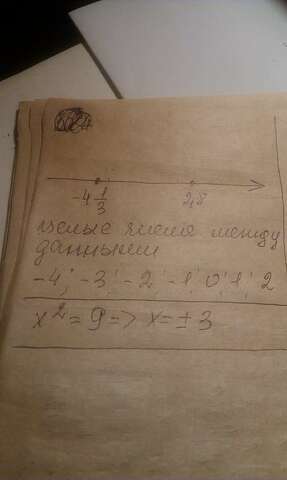 -4 1/3 2,8
целые числа между
данными
-4; -3; -2; -1; 0; 1; 2
x² = 9 => x = ± 3